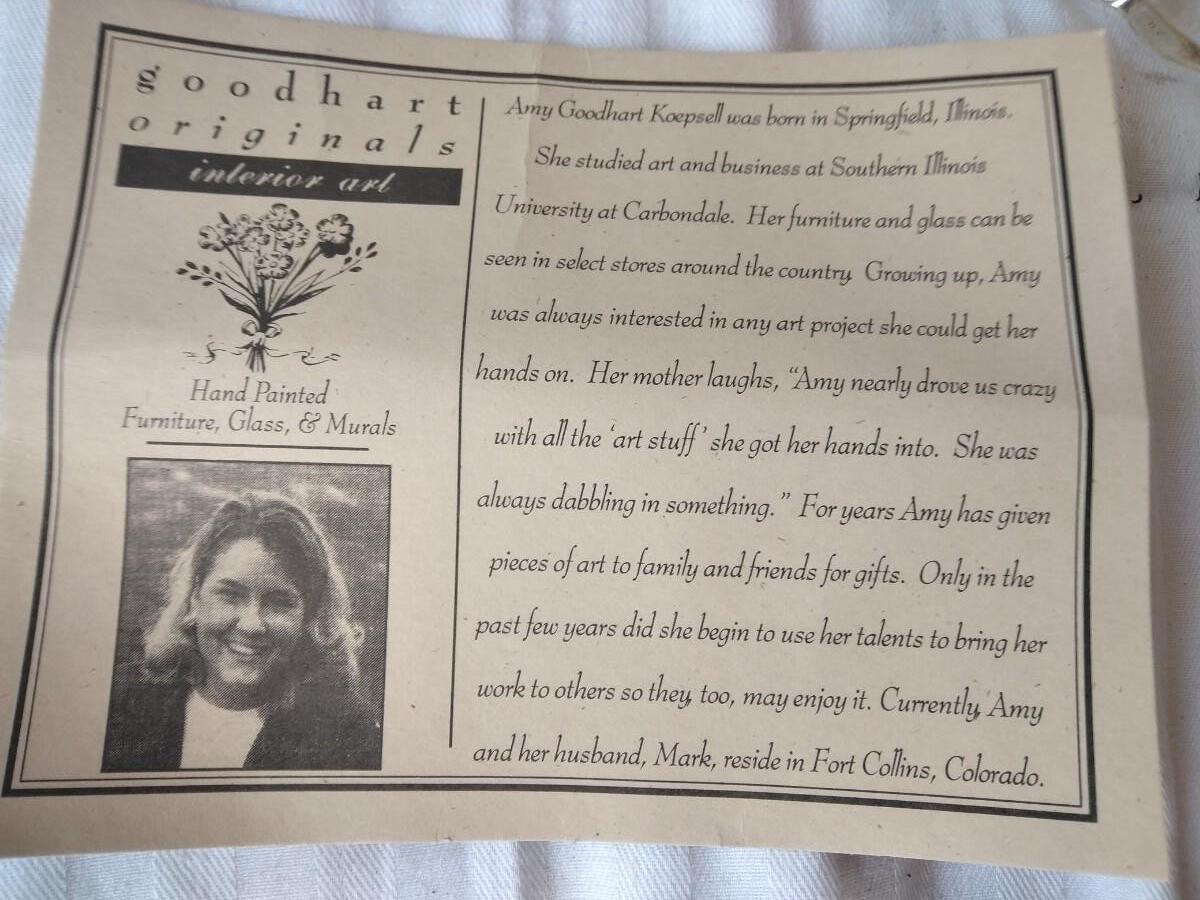 goodhart
originals
interior art
Hand Painted
Furniture, Glass, & Murals
Amy Goodhart Koepsell was born in Springfield, Illinois.
She studied art and business at Southern Illinois
University at Carbondale. Her furniture and glass can be
seen in select stores around the country. Growing up, Amy
was always interested in any art project she could get her
hands on. Her mother laughs, “Amy nearly drove us crazy
with all the ‘art stuff’ she got her hands into. She was
always dabbling in something.” For years Amy has given
pieces of art to family and friends for gifts. Only in the
past few years did she begin to use her talents to bring her
work to others so they, too, may enjoy it. Currently, Amy
and her husband, Mark, reside in Fort Collins, Colorado.